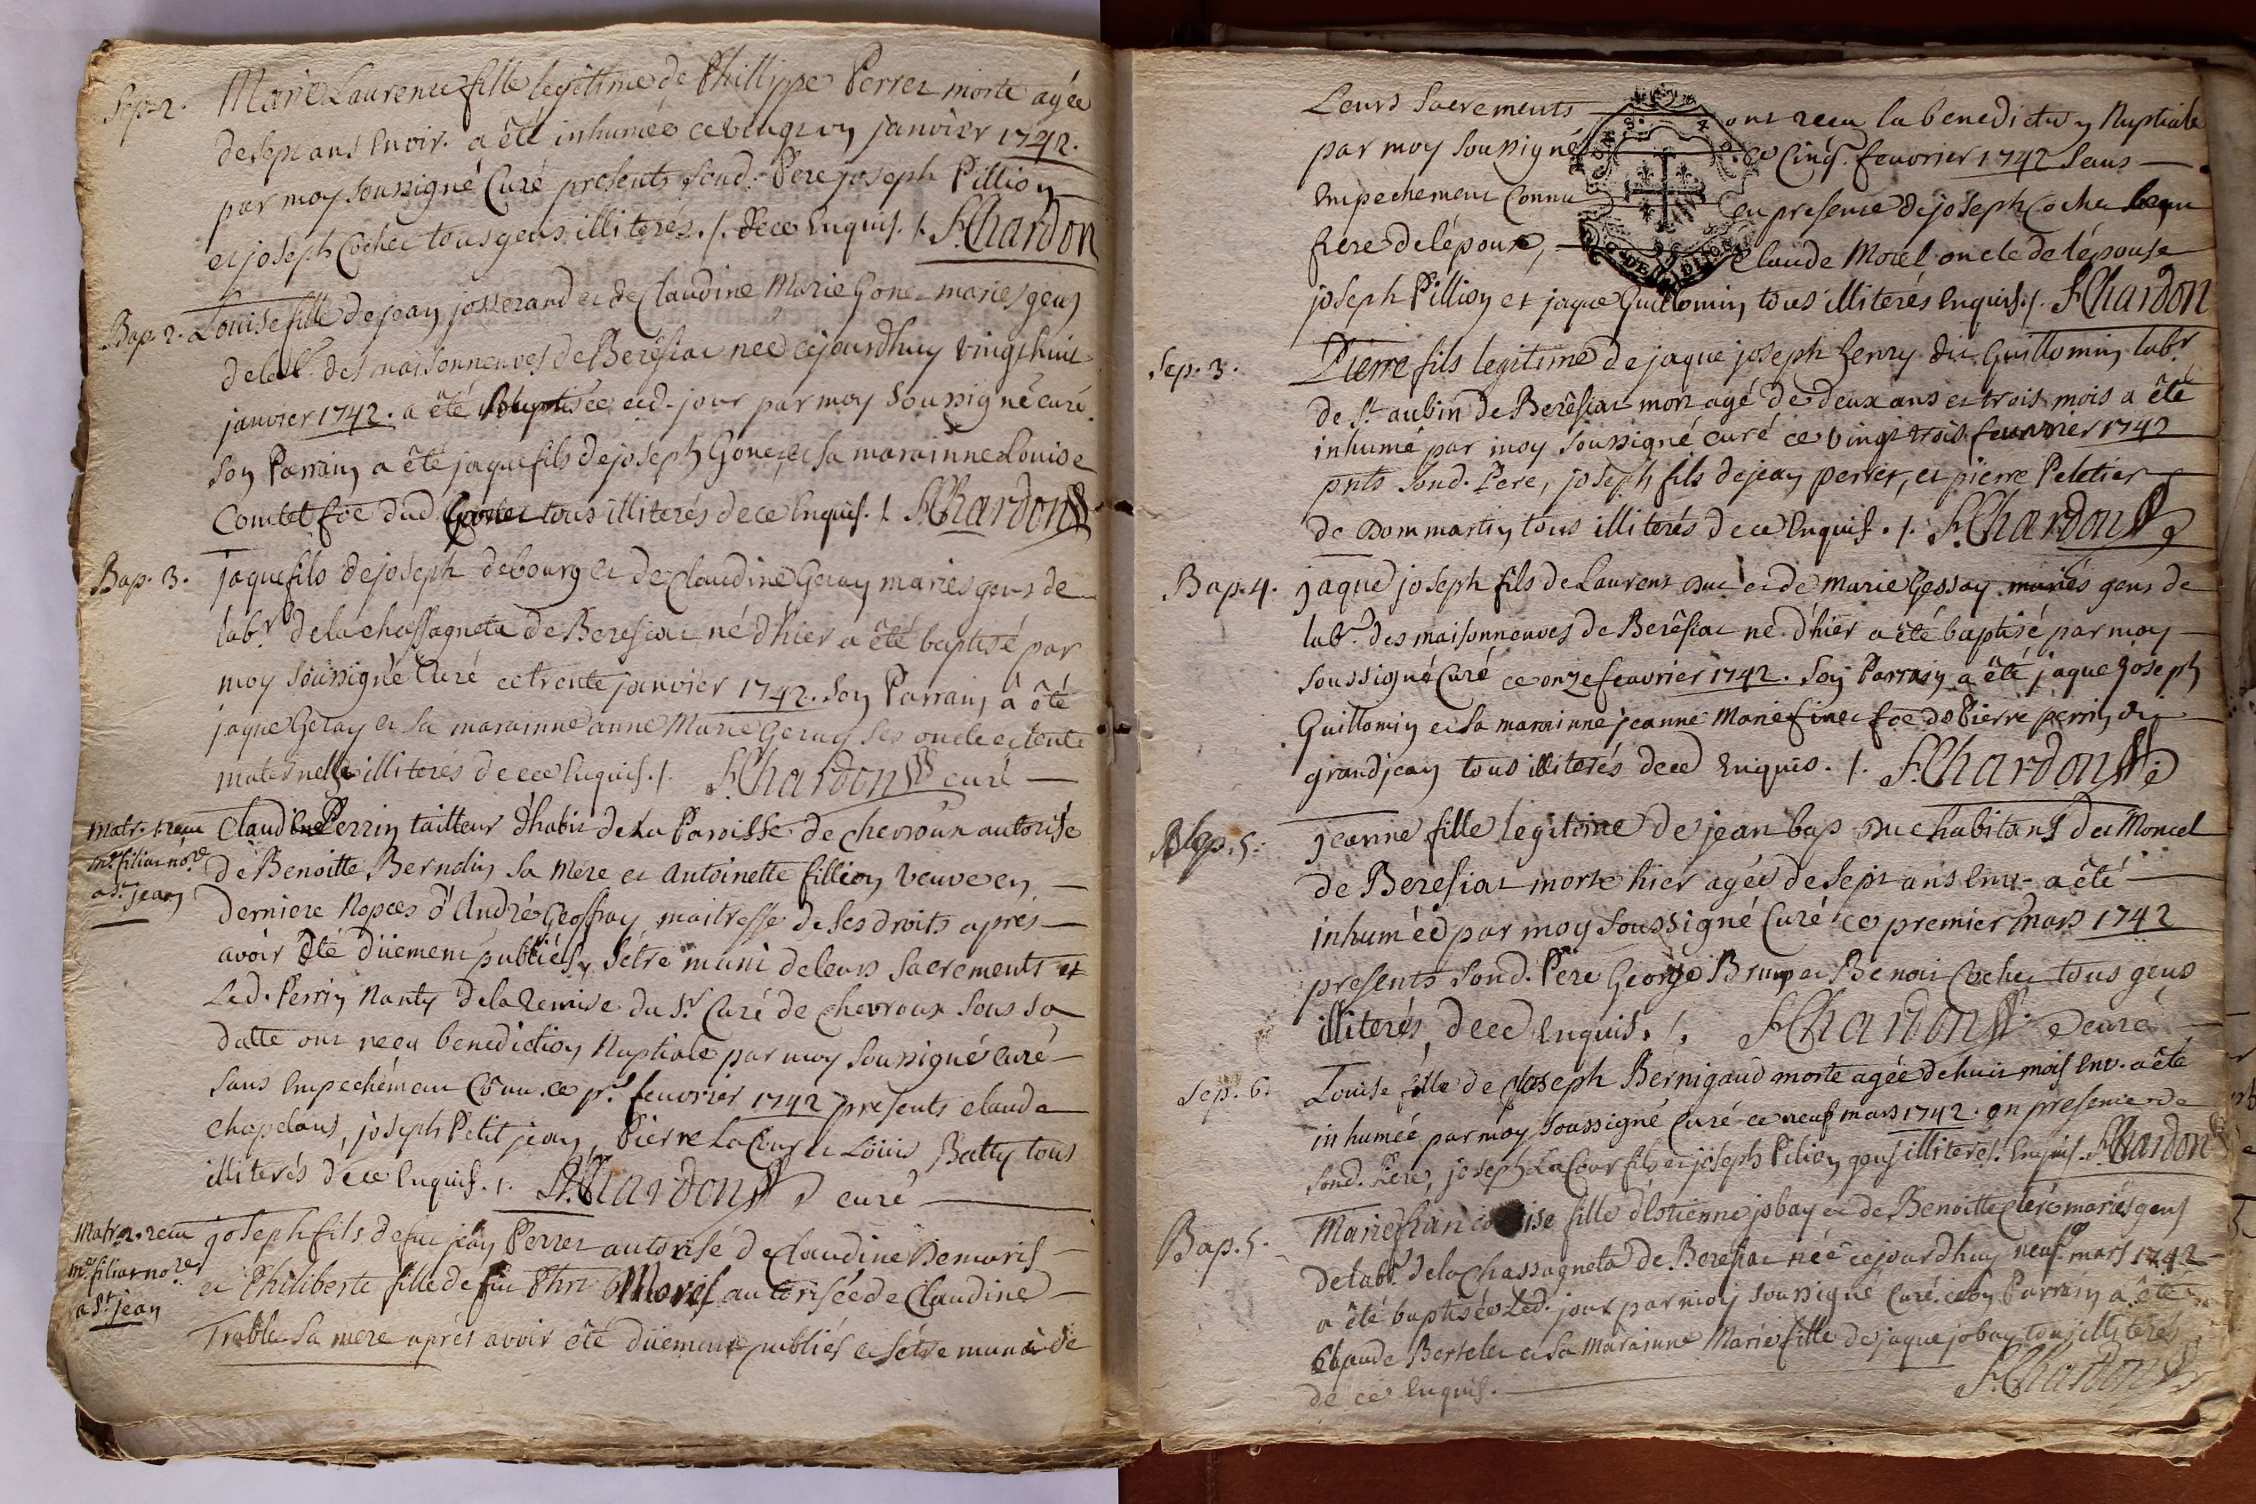 Sep. 2. Marie Laurence fille legitime de Phillippe Perret morte agée
de sept ans Envir. a êté inhumée ce vingt un janvier 1742.
par moy soussigné Curé presents sond. Pere joseph Pillion
et joseph Cochet tous gens illiteres ./. de ce Enquis ./. F. Chardon
Bap. 2. Louise fille de jean josserand et de Claudine Marie Gonet mariés gens
de lab.r des maisonneuves de Berêsiat née cejourdhuy vingt huit
janvier 1742. a êté Bâuptisée ced. jour par moy soussigné curé.
Son Parrain a êté jaque fils de joseph Gonet, et sa marainne Louise
Comtet fõe dud Gonet tous illiterés de ce Enquis. /. F. Chardon
Bap. 3. jaque fils de joseph debourg et de Claudine Geray mariés gens de
lab.r de la chassagneta de Beresiat né d'hier a êté baptisé par
moy soussigné Curé ce trente janvier 1742. Son Parrain â êté
jaque Geray et sa marainne anne Marie Geray ses oncle et tente
maternelle illiterés de ce Enquis ./. F. Chardon curé
Matr. 1. recu Claudine Perrin tailleur d'habit de la Paroisse de chevroux autorisé
m.e filiat nõ.re de Benoitte Bernolin sa mere et antoinette fillion veuve en
a St. jean derniere Nopces d'André Geoffray maitresse de ses droits aprés
avoir êté düement publiés, s'étre muni de leurs sacrements et
Led. Perrin Nanty de la remise du Sr. Curé de chevroux sous sa
datte ont recu benediction Nuptiale par moy soussigné curé
sans Empechément cônu. ce pr. feuvrier 1742 presents claude
chapelans, joseph Petit jean, Pierre LaCour et Loüis Batty tous
illiterés de ce Enquis. /. F. Chardon curé
Matr. 2. recu joseph fils de feu jean Perret autorisé de Claudine Demaris
m.e filiat no.re et Philiberte fille de feu Phri Morel autorisée de Claudine
a St. jean Trable sa mere aprés avoir êté düement publiés et s'étre muni de
Leurs sacrements ont recu la benediction Nuptiale
par moy soussigné ce cinq. feuvrier 1742 sans
Empechement Connu en presence de joseph Cochet beau
frere de l'époux, Claude Morel oncle de l'épouse
joseph Pillion et jaque Guillomin tous illiterés Enquis ./. F. Chardon
Sep. 3. Pierre fils legitime de jaque joseph henry dit Guillomin lab.r
de St. aubin de Berêsiat mort agé de deux ans et trois mois a êté
inhumé par moy soussigné curé ce vingt trois feuvrier 1742
pnts sond. Pere, joseph fils de jean perret, et pierre Peletier
de Dommartin tous illiterés de ce Enquis. /. F. Chardon
Bap. 4. jaque joseph fils de Laurent Duc et de Marie Gessay mariés gens de
lab.r des maisonneuves de Berêsiat né d'hier a êté baptisé par moy
soussigné Curé ce onze feuvrier 1742. Son Parrain a êté jaque joseph
Guillomin et sa marainne jeanne Marie finet fõe de Pierre perrin dit
grandjean tous illiterés de ce Enquis. /. F. Chardon
Sep. 5. jeanne fille legitime de jean bap Duc habitant du Moncel
de Beresiat morte hier agée de sept ans Env. a êté
inhumée par moy soussigné Curé ce premier mars 1742
presents sond. Pere George Brun et Benoit Cochet tous gens
illiterés, de ce Enquis. /. F. Chardon curé
Sep. 6. Louise fille de joseph Bernigaud morte agée de huit mois Env. a êté
inhumée par moy soussigné Curé ce neuf mars 1742. en presence de
sond. Pere, joseph LaCour fils et joseph Pilion gens illiterés. Enquis. F. Chardon
Bap. 5. Marie francoise fille d'Estienne jobay et de Benoitte Clerc mariés gens
de lab.r de la Chassagneta de Beresiat née cejourdhuy neuf mars 1742
a êté baptisée Led. jour par moy soussigné Curé. Son Parrain a êté
Claude Bertelet et sa Marainne Marie fille de jaque jobay tous illiterés
de ce Enquis. F. Chardon